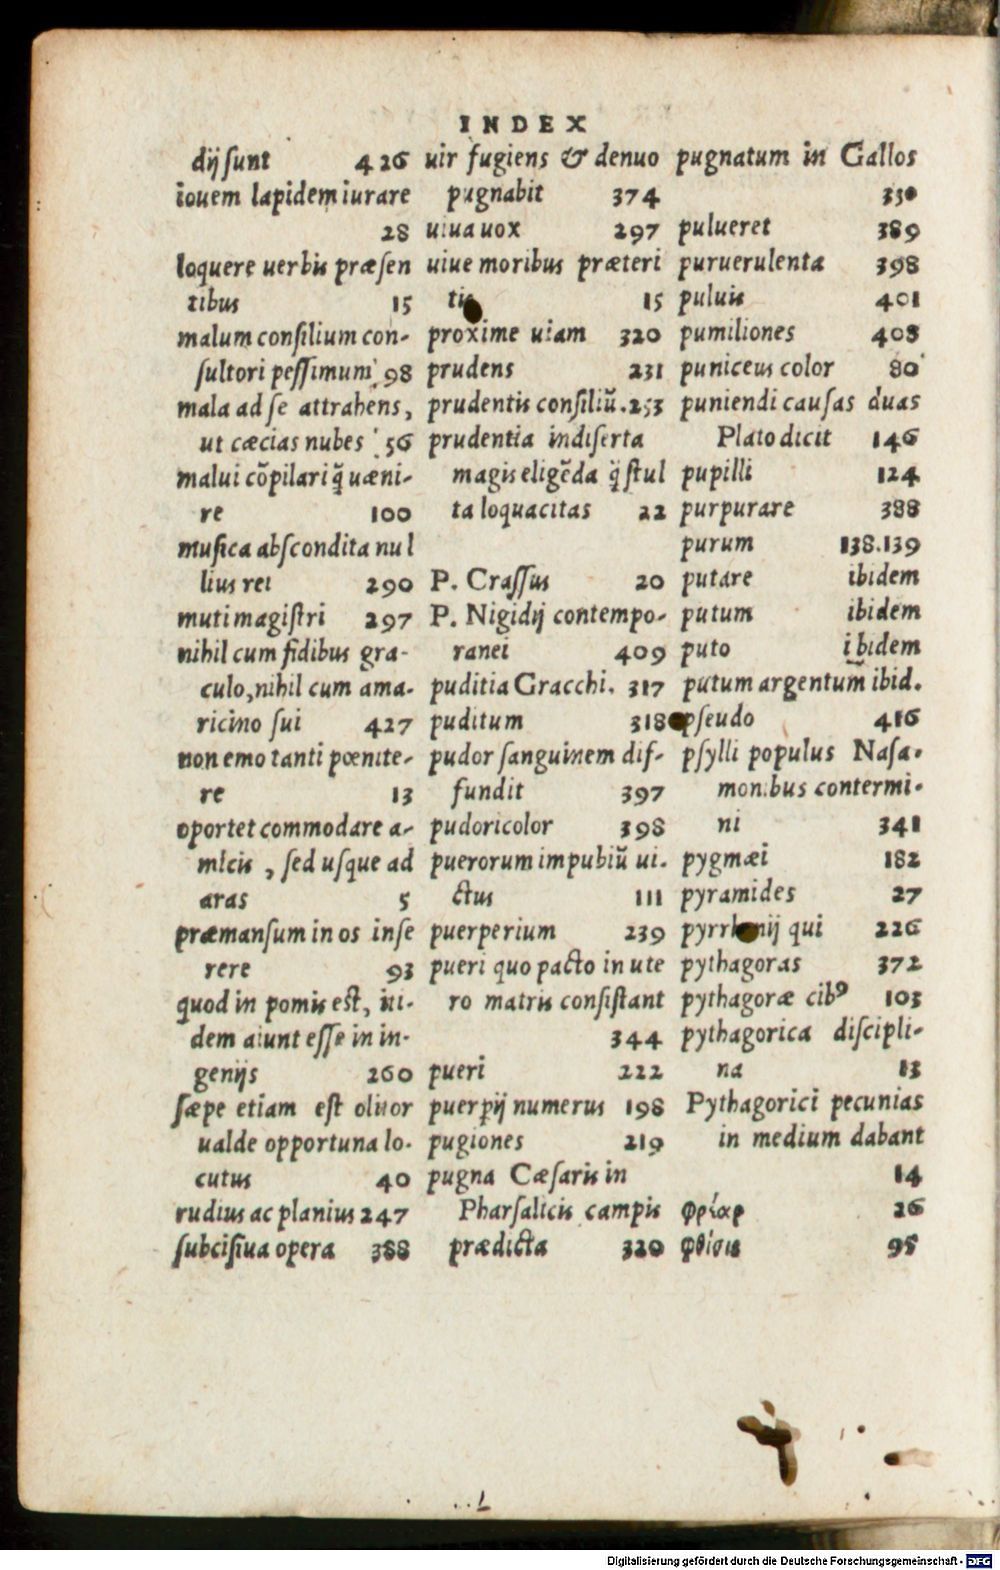 INDEX
dij sunt 426
iouem lapidem iurare
28
loquere uerbis præsen
tibus 15
malum consilium con-
sultori pessimum 98
mala ad se attrahens,
ut cæcias nubes 56
malui cōpilari q̃ uæni-
re 100
musica abscondita nul
lius rei 290
muti magistri 297
nihil cum fidibus gra-
culo, nihil cum ama-
ricino sui 427
non emo tanti pœnite-
re 13
oportet commodare a-
micis, sed usque ad
aras 5
præmansum in os inse
rere 93
quod in pomis est, iti-
dem aiunt esse in in-
genijs 260
sæpe etiam est olitor
ualde opportuna lo-
cutus 40
rudius ac planius 247
subcisiua opera 388
uir fugiens & denuo
pugnabit 374
uiua uox 297
uiue moribus præteri
tis 15
proxime uiam 320
prudens 231
prudentis consiliū. 253
prudentia indiserta
magis eligēda q̃ stul
ta loquacitas 22
P. Crassus 20
P. Nigidij contempo-
ranei 409
puditia Gracchi. 317
puditum 318
pudor sanguinem dif-
fundit 397
pudoricolor 398
puerorum impubiū ui-
ctus 111
puerperium 239
pueri quo pacto in ute
ro matris consistant
344
pueri 222
puerpij numerus 198
pugiones 219
pugna Cæsaris in
Pharsalicis campis
prædicta 320
pugnatum in Gallos
330
pulueret 389
puruerulenta 398
puluis 401
pumiliones 408
puniceus color 80
puniendi causas duas
Plato dicit 146
pupilli 124
purpurare 388
purum 138.139
putare ibidem
putum ibidem
puto ibidem
putum argentum ibid.
pseudo 416
psylli populus Nasa-
monibus contermi-
ni 341
pygmæi 182
pyramides 27
pyrrhenij qui 226
pythagoras 372
pythagoræ cibꝰ 103
pythagorica discipli-
na 13
Pythagorici pecunias
in medium dabant
14
φρέαρ 26
φθίσις 95
Digitalisierung gefördert durch die Deutsche Forschungsgemeinschaft - DFG